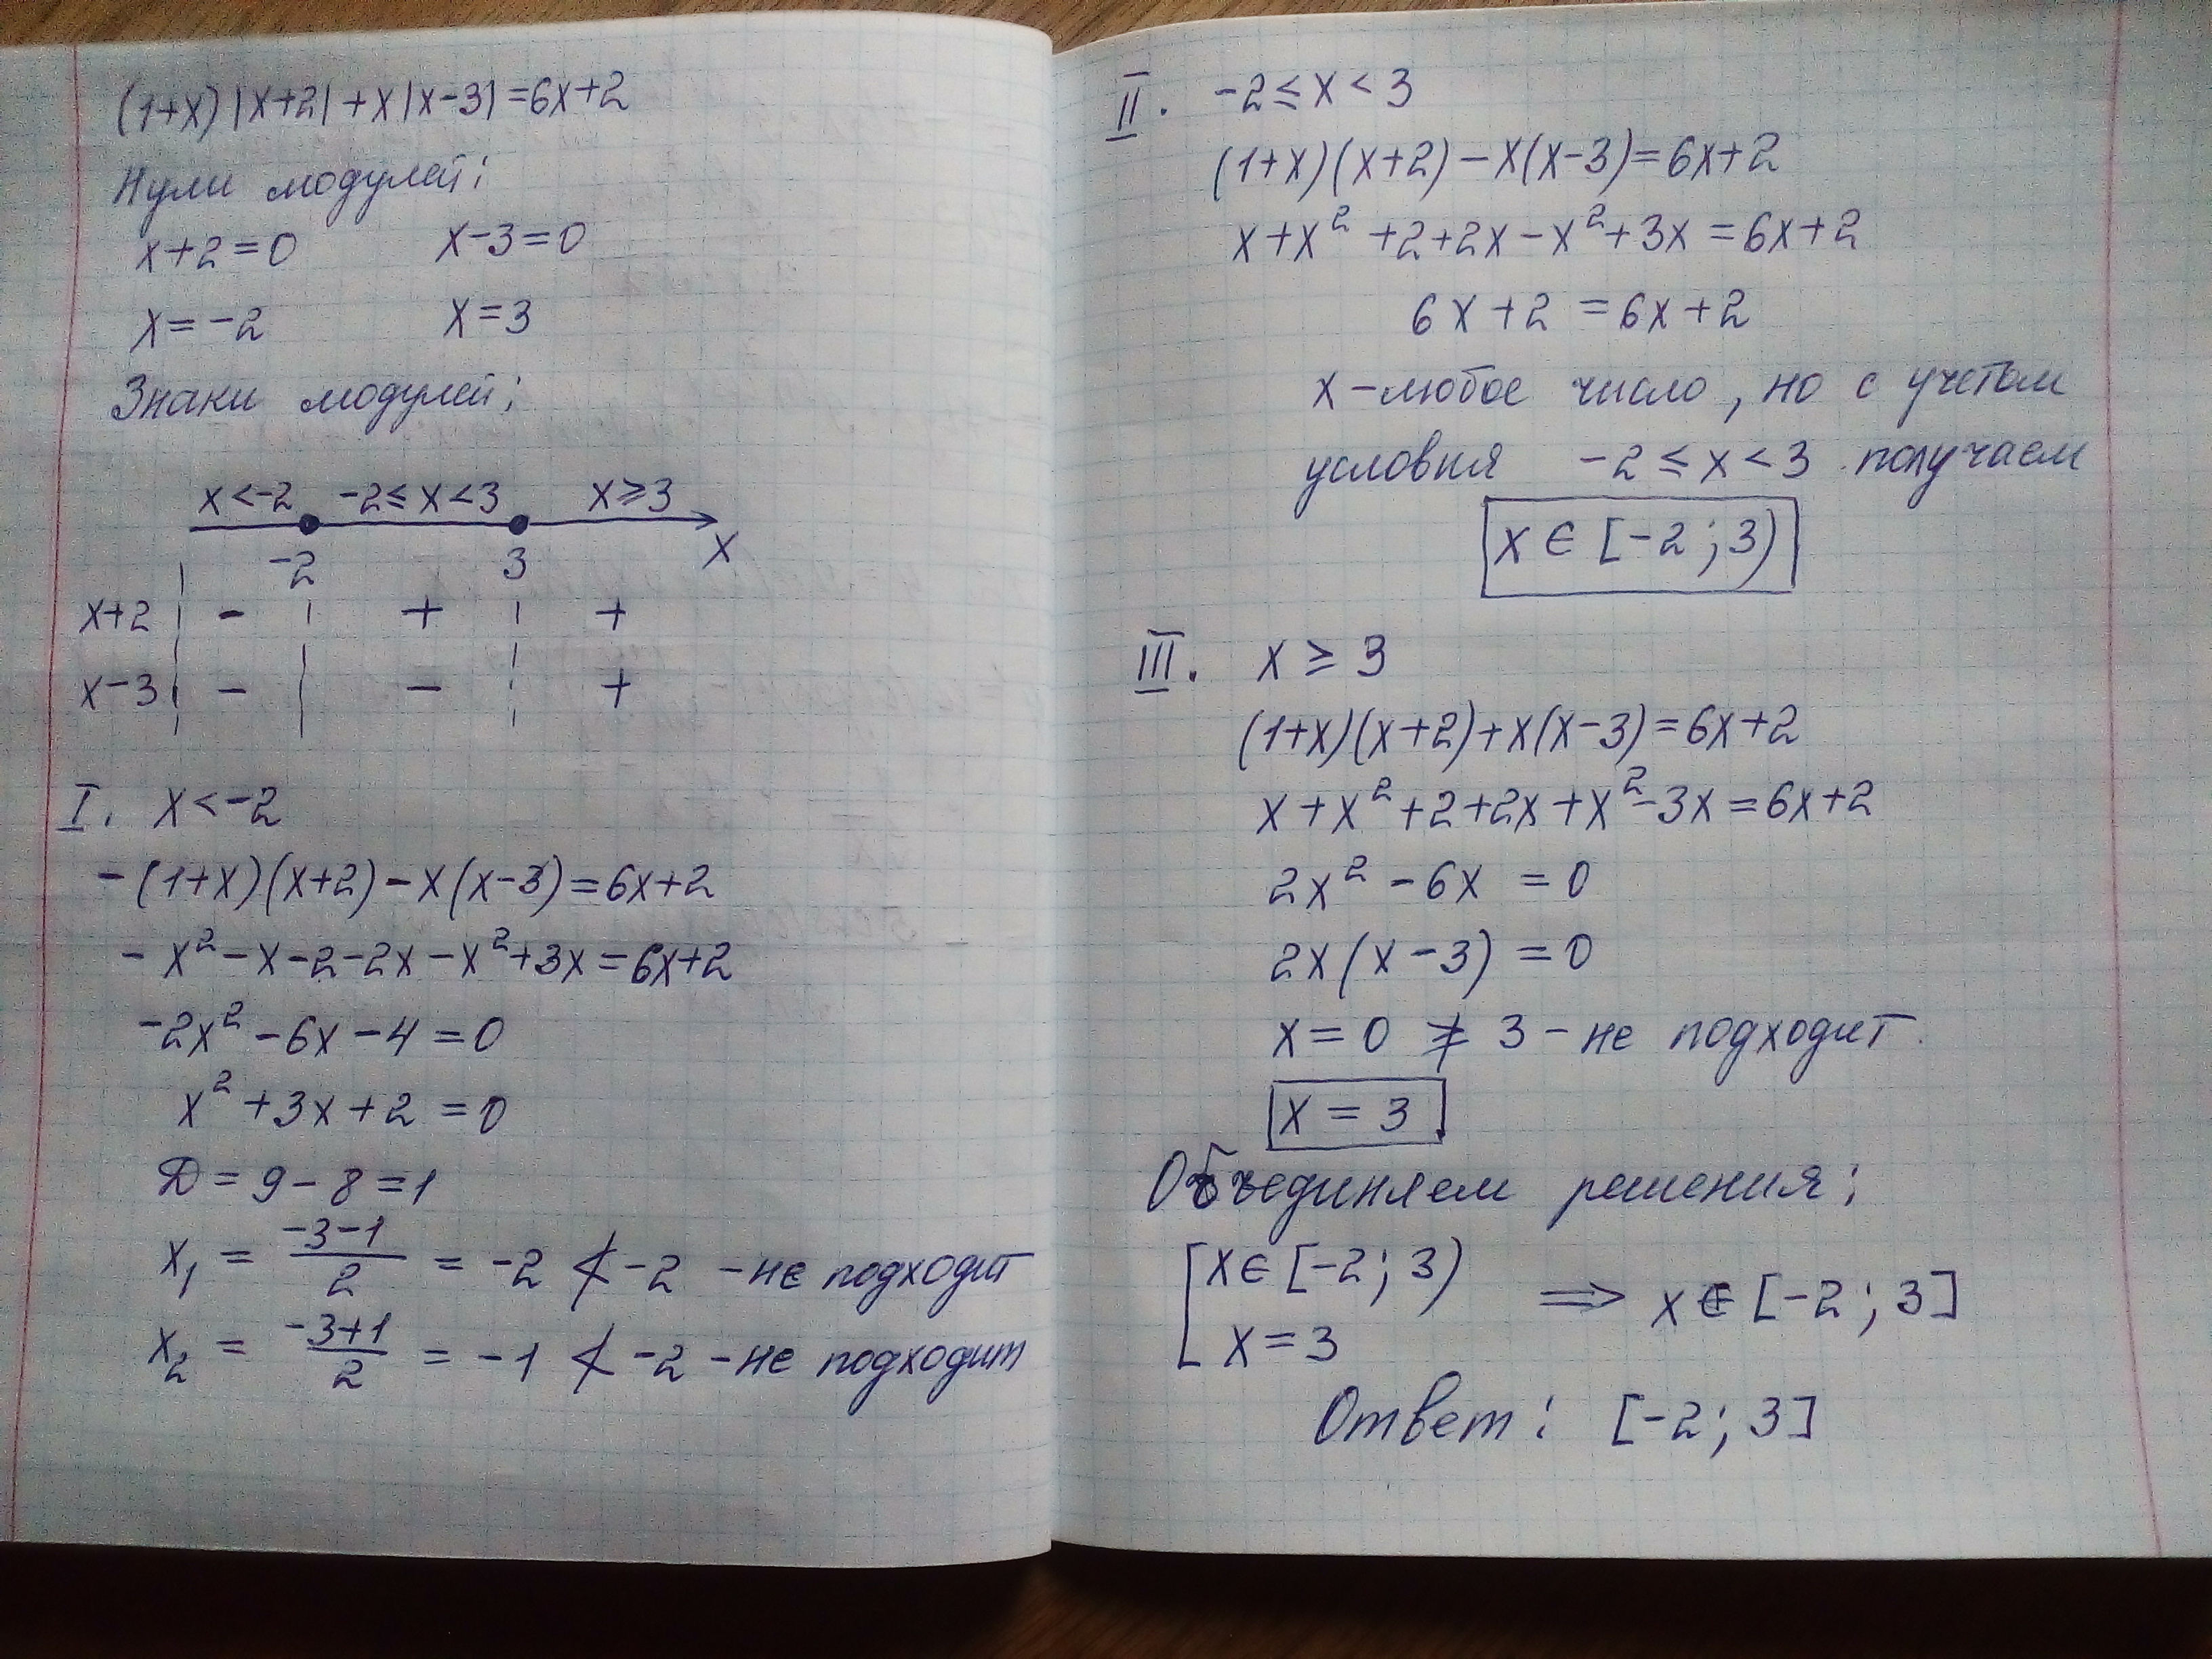 (1+x)|x+2|+x|x-3|=6x+2
Нули модулей:
x+2=0 x-3=0
x=-2 x=3
Знаки модулей:
x<-2 -2≤x<3 x≥3
-2 3 x
x+2 - + +
x-3 - - +
I. x<-2
-(1+x)(x+2)-x(x-3)=6x+2
-x²-x-2-2x-x²+3x=6x+2
-2x²-6x-4=0
x²+3x+2=0
D=9-8=1
x₁ = (-3-1)/2 = -2 ≮ -2 - не подходит
x₂ = (-3+1)/2 = -1 ≮ -2 - не подходит
II. -2≤x<3
(1+x)(x+2)-x(x-3)=6x+2
x+x²+2+2x-x²+3x=6x+2
6x+2=6x+2
x-любое число, но с учетом
условия -2≤x<3 получаем
x∈[-2;3)
III. x≥3
(1+x)(x+2)+x(x-3)=6x+2
x+x²+2+2x+x²-3x=6x+2
2x²-6x=0
2x(x-3)=0
x=0 ≱ 3 - не подходит.
x=3
Объединяем решения:
[ x∈[-2;3)
x=3 ⇒ x∈[-2;3]
Ответ: [-2;3]